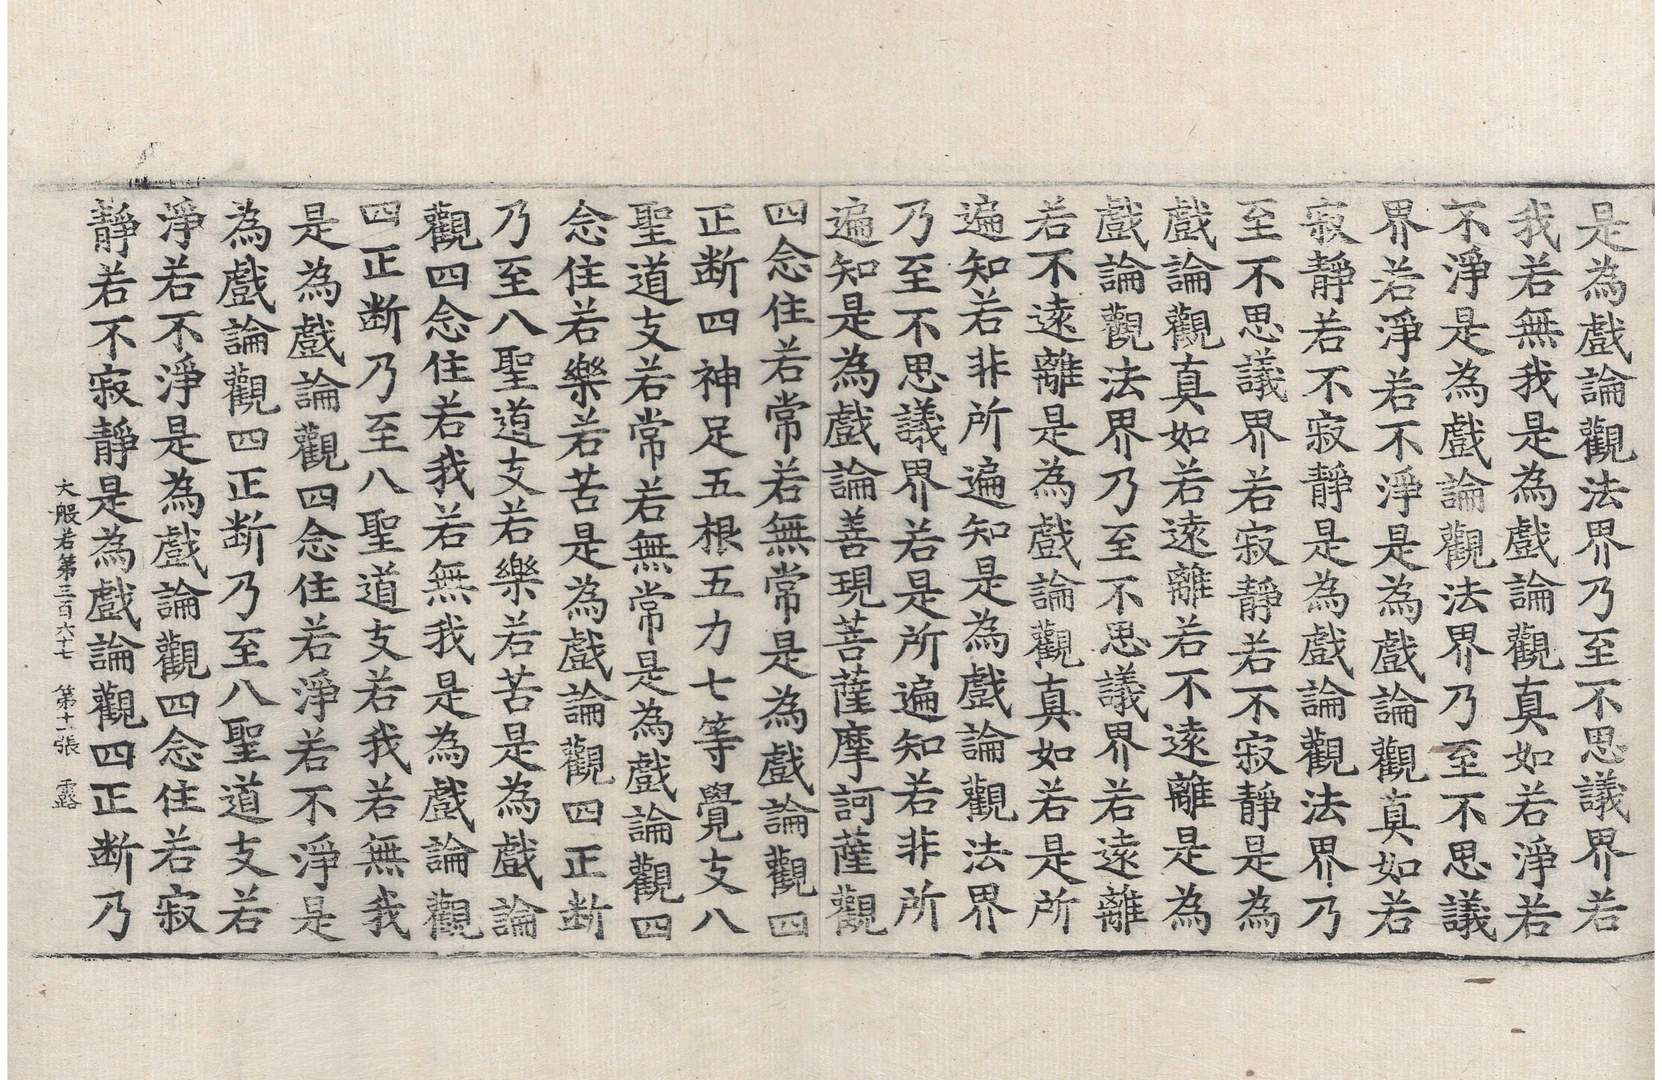 是為戲論觀法界乃至不思議界若
我若無我是為戲論觀真如若淨若
不淨是為戲論觀法界乃至不思議
界若淨若不淨是為戲論觀真如若
寂靜若不寂靜是為戲論觀法界乃
至不思議界若寂靜若不寂靜是為
戲論觀真如若遠離若不遠離是為
戲論觀法界乃至不思議界若遠離
若不遠離是為戲論觀真如若是所
遍知若非所遍知是為戲論觀法界
乃至不思議界若是所遍知若非所
遍知是為戲論善現菩薩摩訶薩觀
四念住若常若無常是為戲論觀四
正断四神足五根五力七等覺支八
聖道支若常若無常是為戲論觀四
念住若樂若苦是為戲論觀四正断
乃至八聖道支若樂若苦是為戲論
觀四念住若我若無我是為戲論觀
四正断乃至八聖道支若我若無我
是為戲論觀四念住若淨若不淨是
為戲論觀四正断乃至八聖道支若
淨若不淨是為戲論觀四念住若寂
靜若不寂靜是為戲論觀四正断乃
大般若第三百六十七 第十一張 露